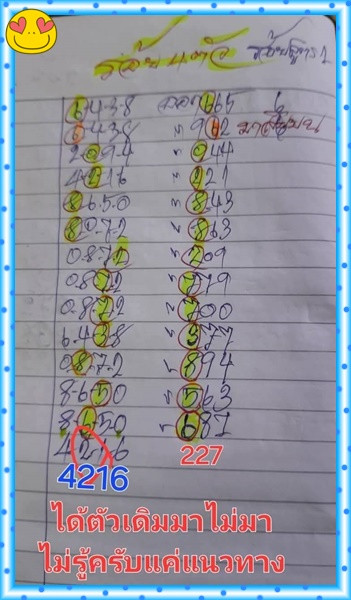 6-4-3-8 ออก 665
6438 " 962
2094 " 944
4216 " 221
8-6-5-0 " 843
8072 " 863
0-8-7-2 " 209
0.8.72 " 779
0.8.72 " 700
6-4-3-8 " 977
0872 " 894
8-6-50 " 563
8-6-50 " 687
4216
4216 227
ได้ตัวเดิมมาไม่มา
ไม่รู้ครับแค่แนวทาง